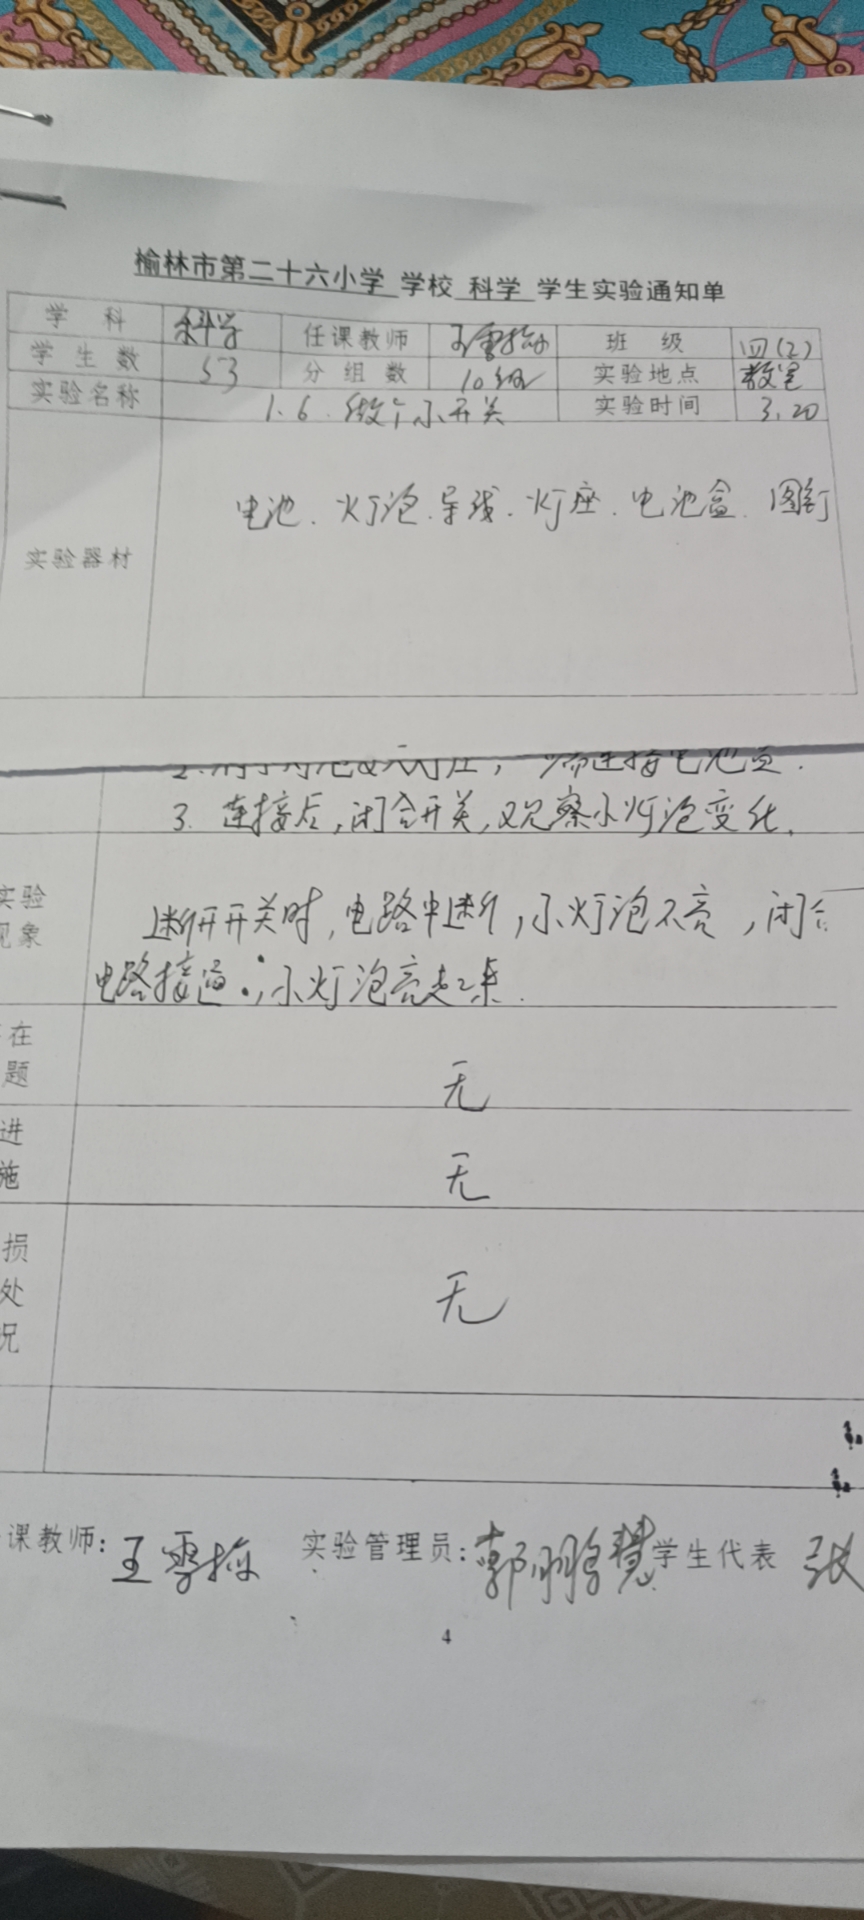 榆林市第二十六小学 学校 科学 学生实验通知单
学 科 科学 任课教师 王雪梅 班 级 四(2)
学生数 53 分组数 10组 实验地点 教室
实验名称 1.6.做个小开关 实验时间 3.20
实验器材 电池.灯泡.导线.灯座.电池盒.图钉
3.连接后,闭合开关,观察小灯泡变化.
实验
现象
断开开关时,电路中断,小灯泡不亮,闭合
电路接通,小灯泡亮起来.
在
题
无
进
施
无
损
处
况
无
课教师:王雪梅 实验管理员:郭鹏慧 学生代表 张
4